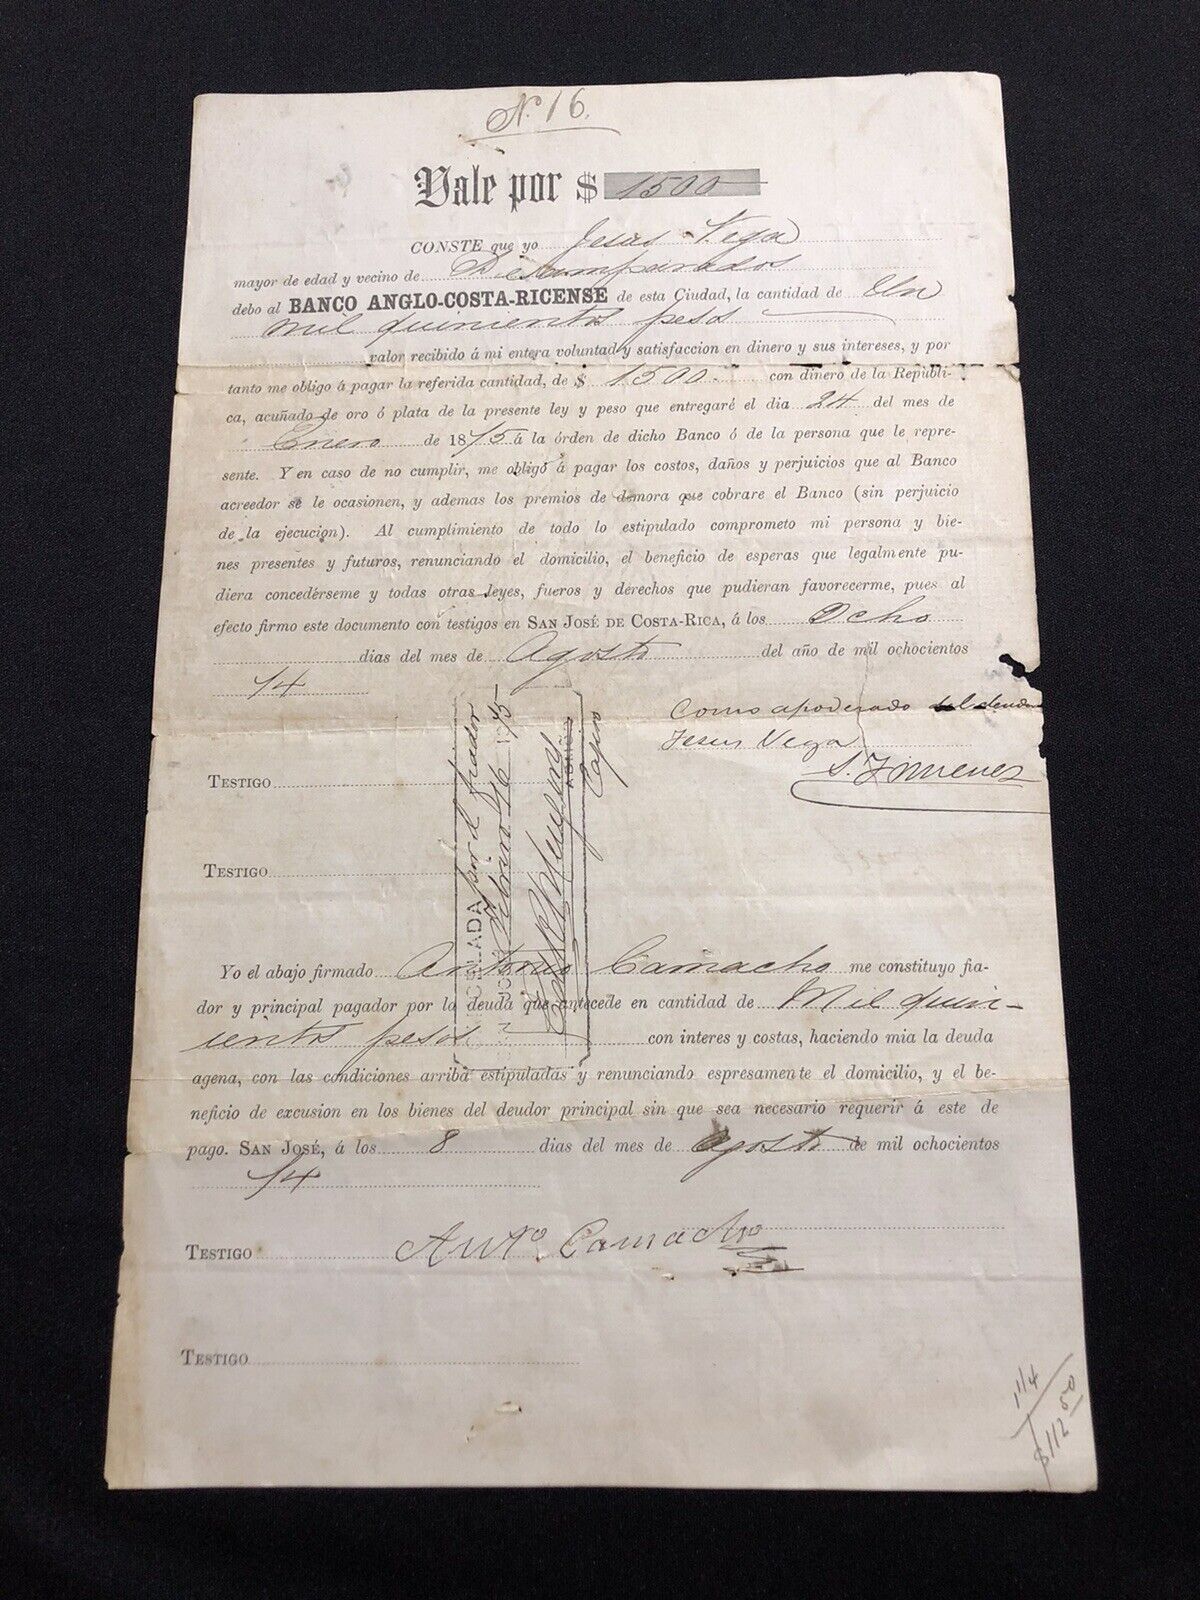 No. 16.
Vale por $ 1500
CONSTE que yo Jesus Vega
mayor de edad y vecino de Desamparados
debo al BANCO ANGLO-COSTA-RICENSE de esta Ciudad, la cantidad de Un
mil quinientos pesos
valor recibido á mi entera voluntad y satisfaccion en dinero y sus intereses, y por
tanto me obligo á pagar la referida cantidad, de $ 1500 con dinero de la Repúbli-
ca, acuñado de oro ó plata de la presente ley y peso que entregaré el dia 24 del mes de
Enero de 1875 á la órden de dicho Banco ó de la persona que le repre-
sente. Y en caso de no cumplir, me obligo á pagar los costos, daños y perjuicios que al Banco
acreedor se le ocasionen, y ademas los premios de demora que cobrare el Banco (sin perjuicio
de la ejecucion). Al cumplimiento de todo lo estipulado comprometo mi persona y bie-
nes presentes y futuros, renunciando el domicilio, el beneficio de esperas que legalmente pu-
diera concedérseme y todas otras leyes, fueros y derechos que pudieran favorecerme, pues al
efecto firmo este documento con testigos en SAN JOSÉ DE COSTA-RICA, á los Ocho
dias del mes de Agosto del año de mil ochocientos
74
Como apoderado del deudor
Jesus Vega
TESTIGO
S. Jimenez
TESTIGO
CANCELADA por el fiador
Febrero 26 1875
Cajero
Yo el abajo firmado Antonio Camacho me constituyo fia-
dor y principal pagador por la deuda que antecede en cantidad de Mil quin-
ientos pesos con interes y costas, haciendo mia la deuda
agena, con las condiciones arriba estipuladas y renunciando espresamente el domicilio, y el be-
neficio de excusion en los bienes del deudor principal sin que sea necesario requerir á este de
pago. SAN JOSÉ, á los 8 dias del mes de Agosto de mil ochocientos
74
TESTIGO Anto Camacho
TESTIGO
1 1/4
$112 50